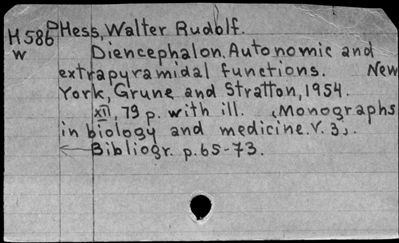 H586D Hess, Walter Rudolf.
w Diencephalon. Autonomic and
extrapyramidal functions. New
York, Grune and Stratton, 1954.
XII, 79 p. with ill. (Monographs
in biology and medicine. V. 3).
Bibliogr. p. 65-73.